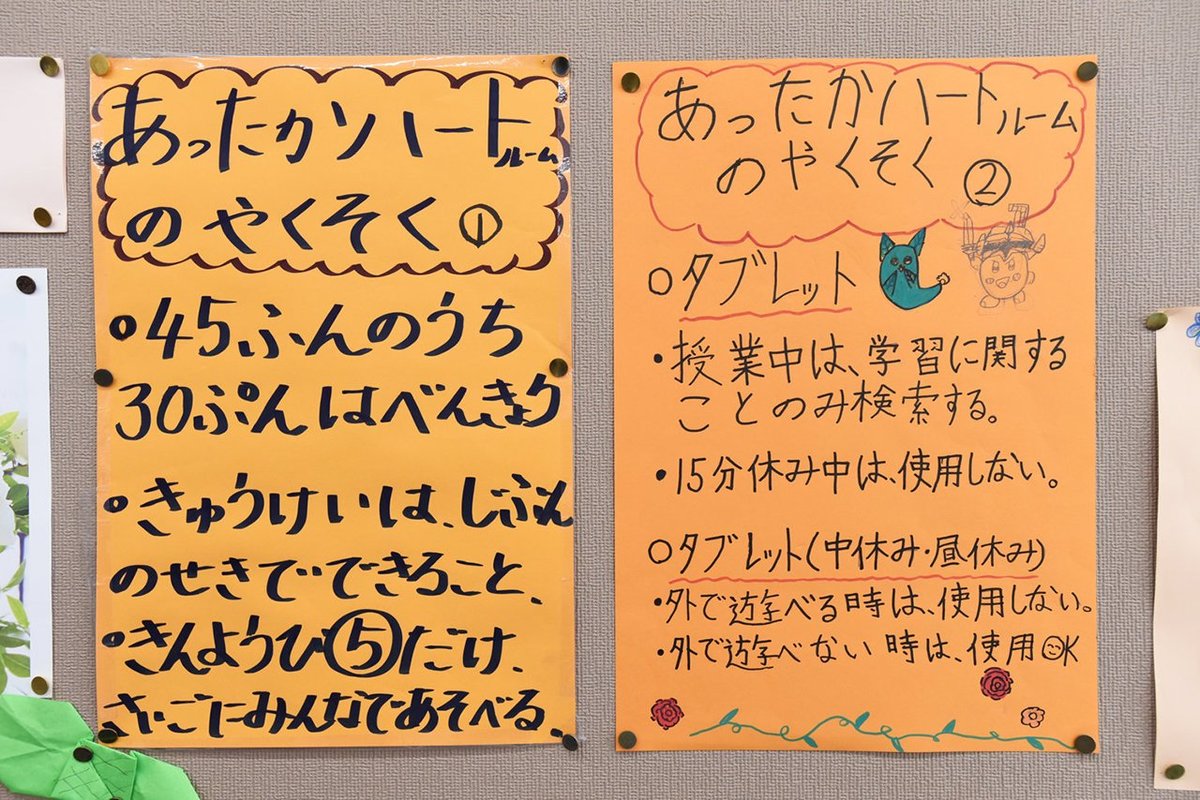 あったかハートルーム
のやくそく①
○45ふんのうち
30ぷんはべんきょう
○きゅうけいは、じぶん
のせきでできること、
○きんようび⑤だけ、
さいごにみんなであそべる。
あったかハートルーム
のやくそく②
○タブレット
・授業中は、学習に関する
ことのみ検索する。
・15分休み中は、使用しない。
○タブレット(中休み・昼休み)
・外で遊べる時は、使用しない。
・外で遊べない時は、使用OK